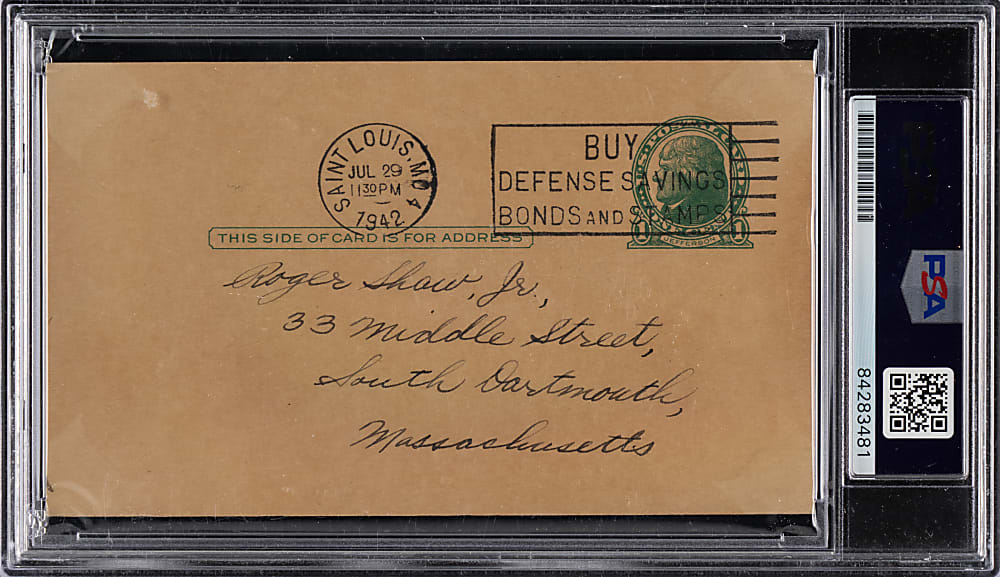 SAINT LOUIS, MO 4
JUL 29
11 30 PM
1942
BUY
DEFENSE SAVINGS
BONDS AND STAMPS
THIS SIDE OF CARD IS FOR ADDRESS
1 JEFFERSON 1
Roger Shaw, Jr.,
33 Middle Street,
South Dartmouth,
Massachusetts
PSA
84283481